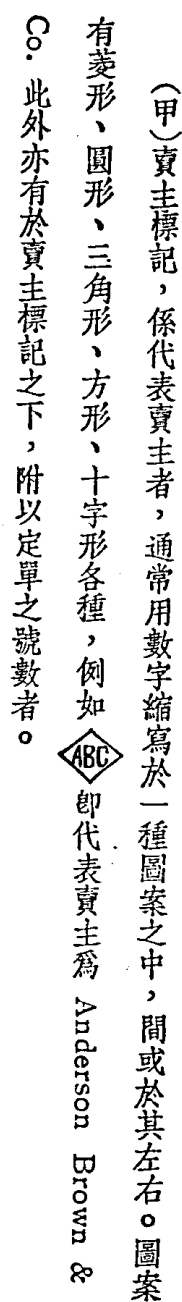 （甲）賣主標記，係代表賣主者，通常用數字縮寫於一種圖案之中，間或於其左右。圖案
有菱形、圓形、三角形、方形、十字形各種，例如 ABC 卽代表賣主爲 Anderson Brown &
Co. 此外亦有於賣主標記之下，附以定單之號數者。